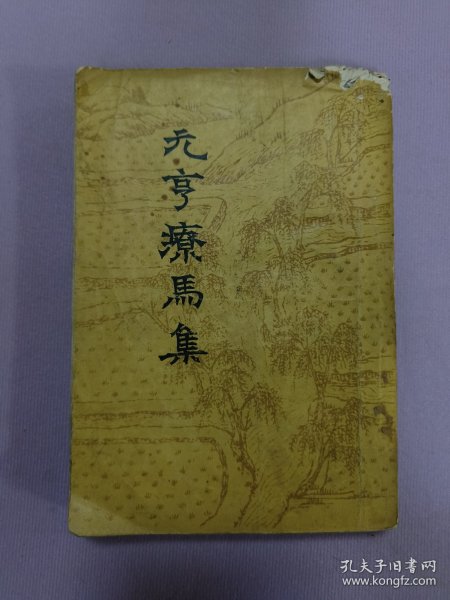 元亨療馬集
孔夫子旧书网
www.kongfz.com